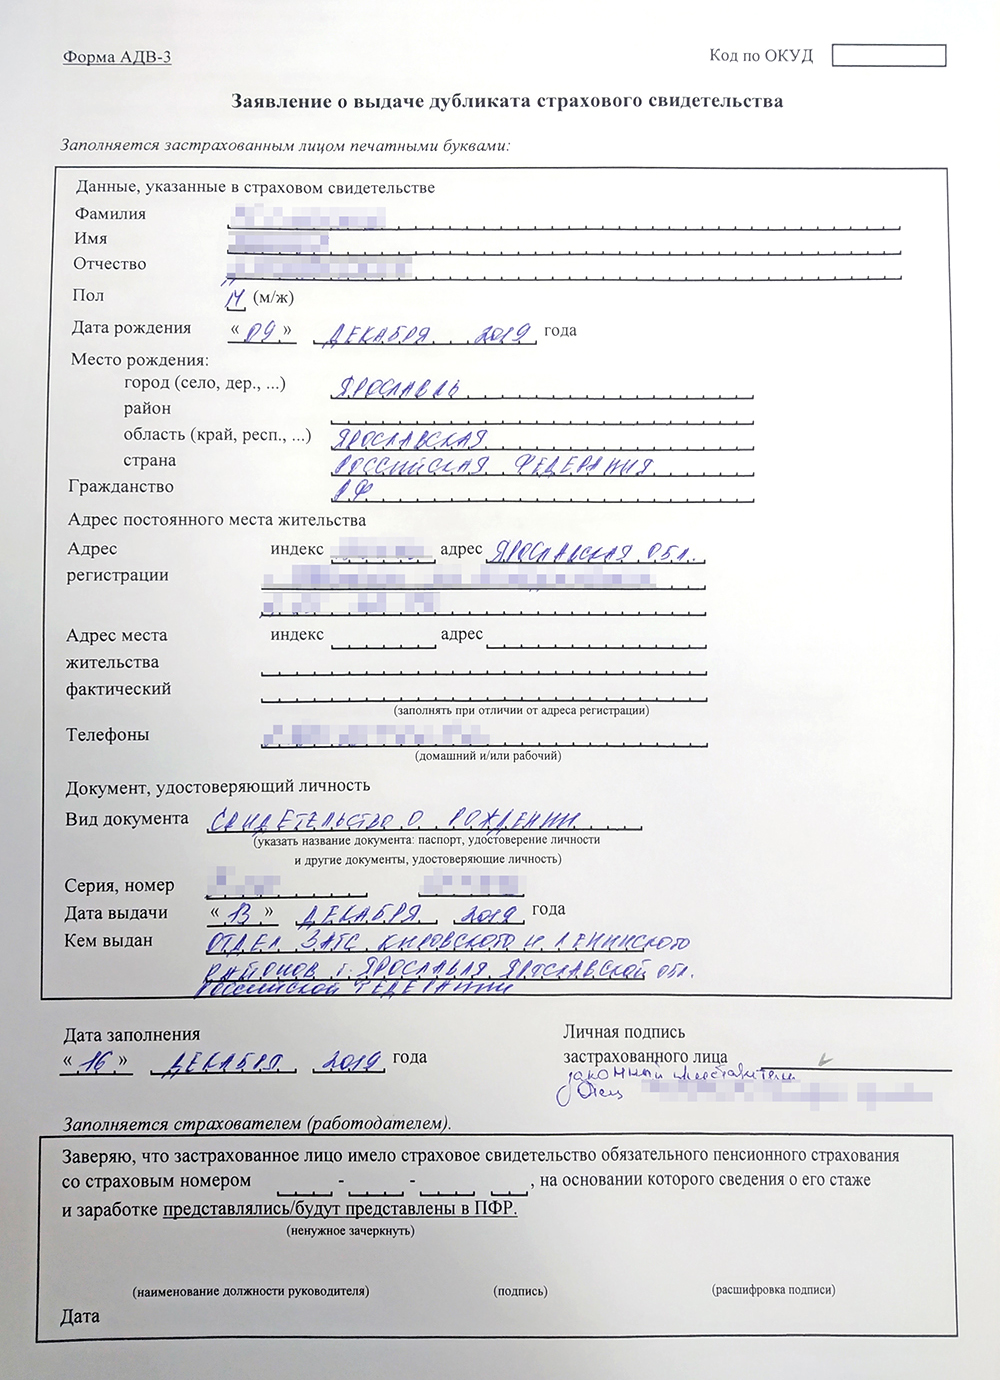 Форма АДВ-3
Код по ОКУД
Заявление о выдаче дубликата страхового свидетельства
Заполняется застрахованным лицом печатными буквами:
Данные, указанные в страховом свидетельстве
Фамилия
Имя
Отчество
Пол М (м/ж)
Дата рождения « 09 » ДЕКАБРЯ 2019 года
Место рождения:
город (село, дер., ...) ЯРОСЛАВЛЬ
район
область (край, респ., ...) ЯРОСЛАВСКАЯ
страна РОССИЙСКАЯ ФЕДЕРАЦИЯ
Гражданство РФ
Адрес постоянного места жительства
Адрес индекс адрес ЯРОСЛАВСКАЯ ОБЛ.
регистрации
Адрес места индекс адрес
жительства
фактический
(заполнять при отличии от адреса регистрации)
Телефоны
(домашний и/или рабочий)
Документ, удостоверяющий личность
Вид документа СВИДЕТЕЛЬСТВО О РОЖДЕНИИ
(указать название документа: паспорт, удостоверение личности
и другие документы, удостоверяющие личность)
Серия, номер
Дата выдачи « 13 » ДЕКАБРЯ 2019 года
Кем выдан ОТДЕЛ ЗАГС КИРОВСКОГО И ЛЕНИНСКОГО
РАЙОНОВ г. ЯРОСЛАВЛЯ ЯРОСЛАВСКОЙ ОБЛ.
РОССИЙСКОЙ ФЕДЕРАЦИИ
Дата заполнения
« 16 » ДЕКАБРЯ 2019 года
Личная подпись
застрахованного лица
законный представитель
Отец
Заполняется страхователем (работодателем).
Заверяю, что застрахованное лицо имело страховое свидетельство обязательного пенсионного страхования
со страховым номером - - , на основании которого сведения о его стаже
и заработке представлялись/будут представлены в ПФР.
(ненужное зачеркнуть)
(наименование должности руководителя) (подпись) (расшифровка подписи)
Дата